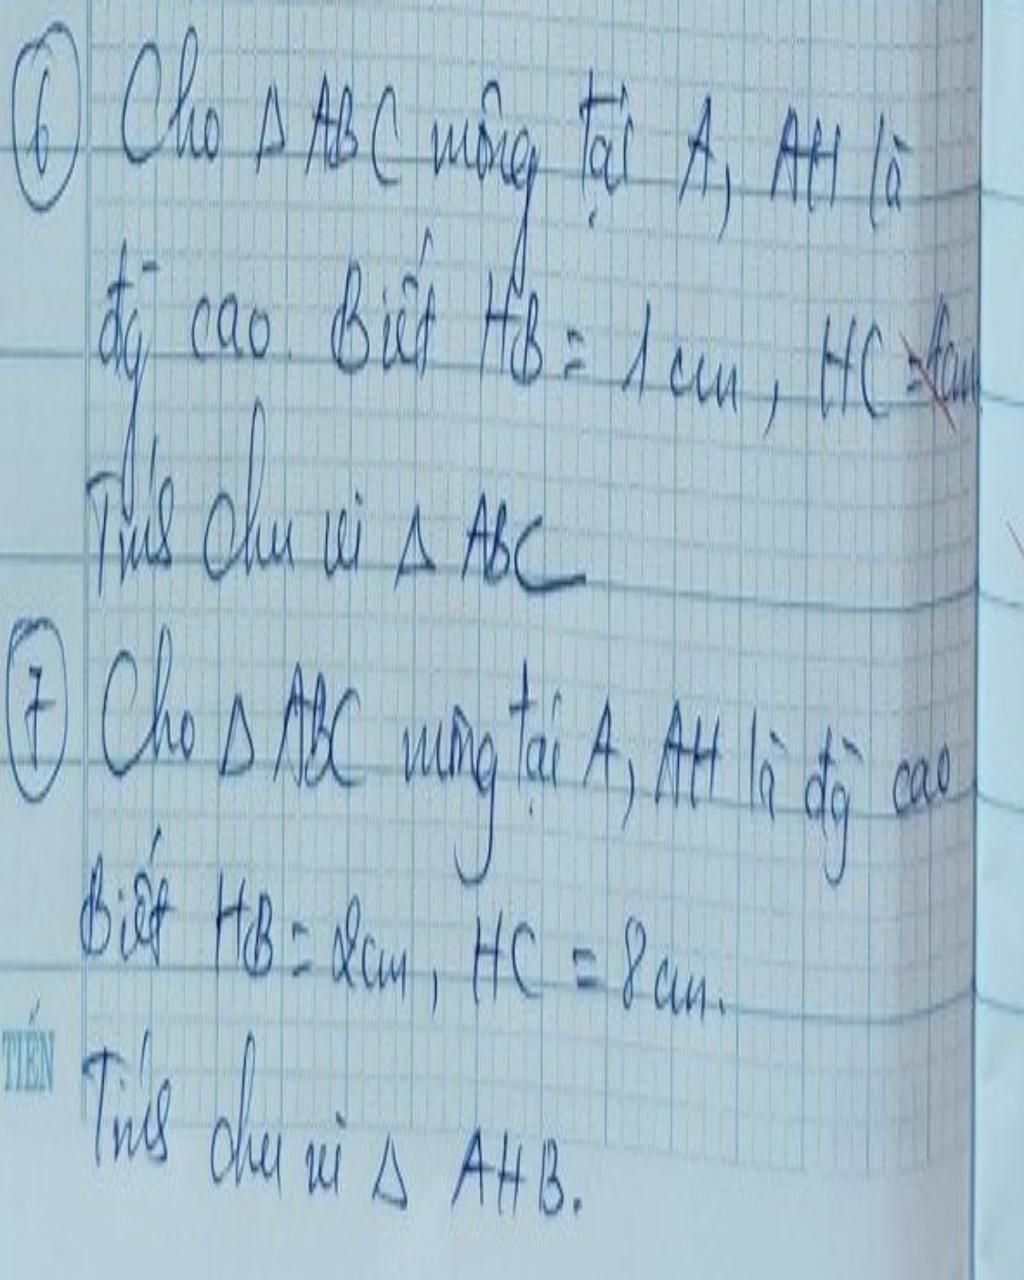 6 Cho Δ ABC vuông tại A, AH là
đg cao. Biết HB = 1 cm, HC = cm
Tính chu vi Δ ABC
7 Cho Δ ABC vuông tại A, AH là đg cao
Biết HB = 2cm, HC = 8 cm.
TIẾN
Tính chu vi Δ AHB.